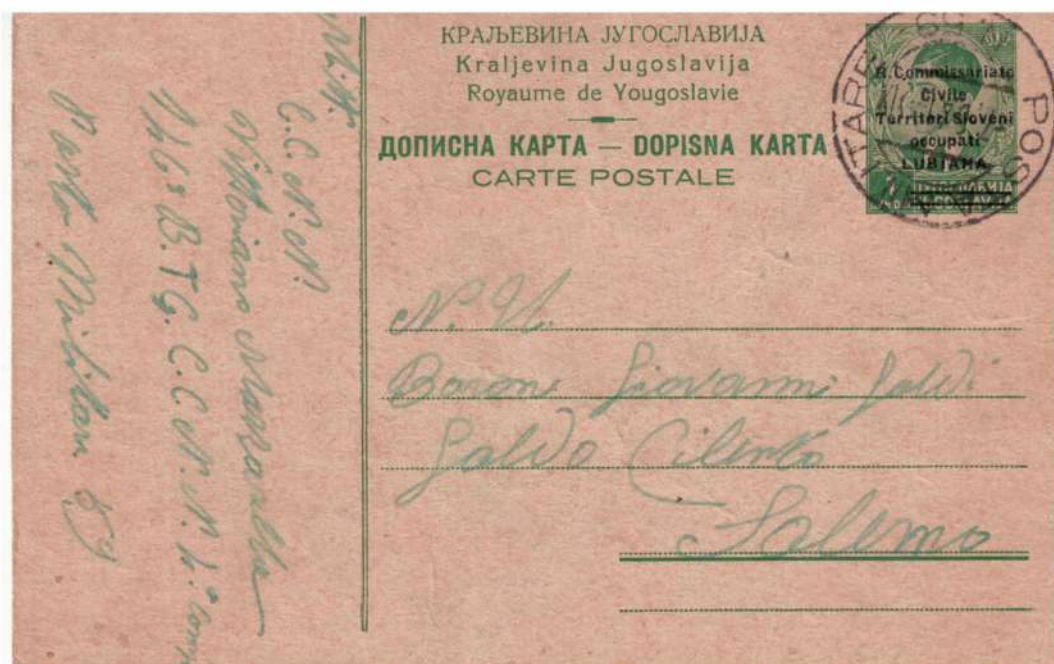 КРАЉЕВИНА ЈУГОСЛАВИЈА
Kraljevina Jugoslavija
Royaume de Yougoslavie
ДОПИСНА КАРТА — DOPISNA KARTA
CARTE POSTALE
R. Commissariato
Civile
Territori Sloveni
occupati
LUBIANA
POSTA
N. H.
Barone Giovanni Galdi
Galdo Cilento
Salerno
Mitt.
C.C. N. N.
Vittoriano
B. T G. C. C. N. N. 4ª Comp
Posta Militare 59